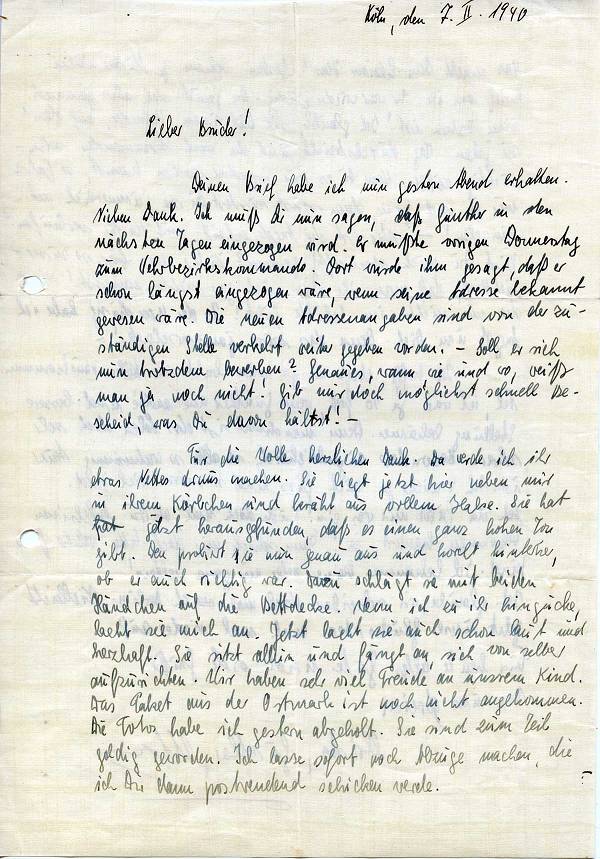 Köln, den 7. II. 1940
Lieber Bruder!
Deinen Brief habe ich nun gestern Abend erhalten.
Vielen Dank. Ich muß dir nun sagen, daß Günther in den
nächsten Tagen eingezogen wird. Er mußte vorigen Donnerstag
zum Wehrbezirkskommando. Dort wurde ihm gesagt, daß er
schon längst eingezogen wäre, wenn seine Adresse bekannt
gewesen wäre. Die neuen Adressenangaben sind von der zu-
ständigen Stelle verkehrt weiter gegeben worden. – Soll er sich
nun trotzdem bewerben? Genaues, wann wie und wo, weiß
man ja noch nicht! Gib mir doch möglichst schnell Be-
scheid, was Du davon hältst! –
Für die Wolle herzlichen Dank. Da werde ich ihr
etwas Nettes draus machen. Sie liegt jetzt hier neben mir
in ihrem Körbchen und kräht aus vollem Halse. Sie hat
hat jetzt herausgefunden, daß es einen ganz hohen Ton
gibt. Den probiert sie nun genau aus und horcht hinterher,
ob er auch richtig war. Dazu schlägt sie mit beiden
Händchen auf die Bettdecke. Wenn ich zu ihr hingucke,
lacht sie mich an. Jetzt lacht sie auch schon laut und
herzhaft. Sie sitzt allein und fängt an, sich von selber
aufzurichten. Wir haben sehr viel Freude an unserem Kind.
Das Paket aus der Ostmark ist noch nicht angekommen.
Die Fotos habe ich gestern abgeholt. Sie sind zum Teil
goldig geworden. Ich lasse sofort noch Abzüge machen, die
ich Dir dann postwendend schicken werde.